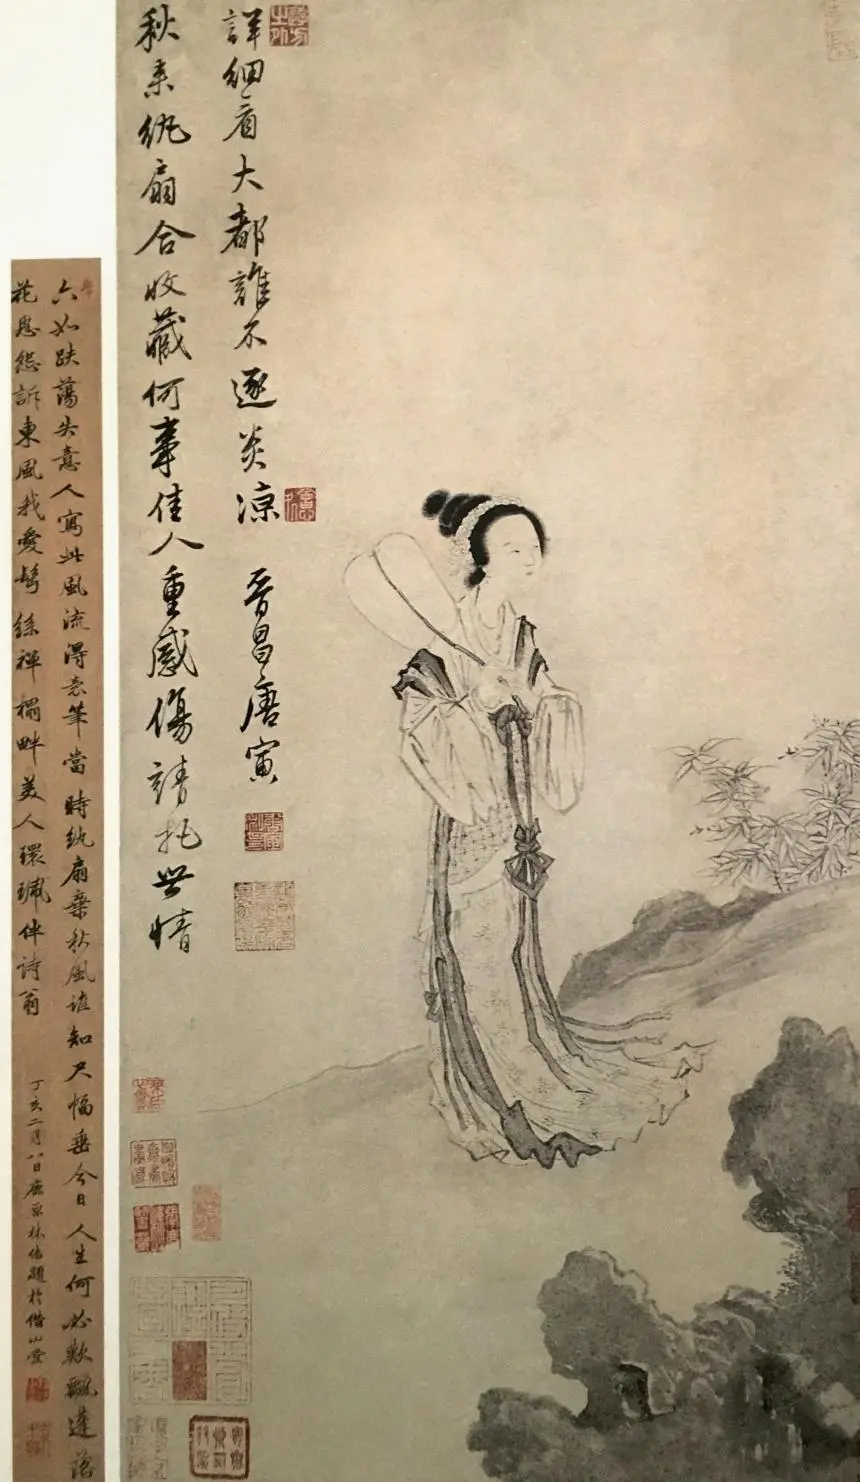 秋來紈扇合收藏何事佳人重感傷請把世情
詳細看大都誰不逐炎涼 晉昌唐寅
六如跌蕩失意人寫此風流得意筆當時紈扇棄秋風誰知尺幅垂今日人生何必歎飄蓬落
花恩怨訴東風我愛鬢絲禪榻畔美人環珮伴詩翁 丁亥二月八日鹿原林佶題於借山堂